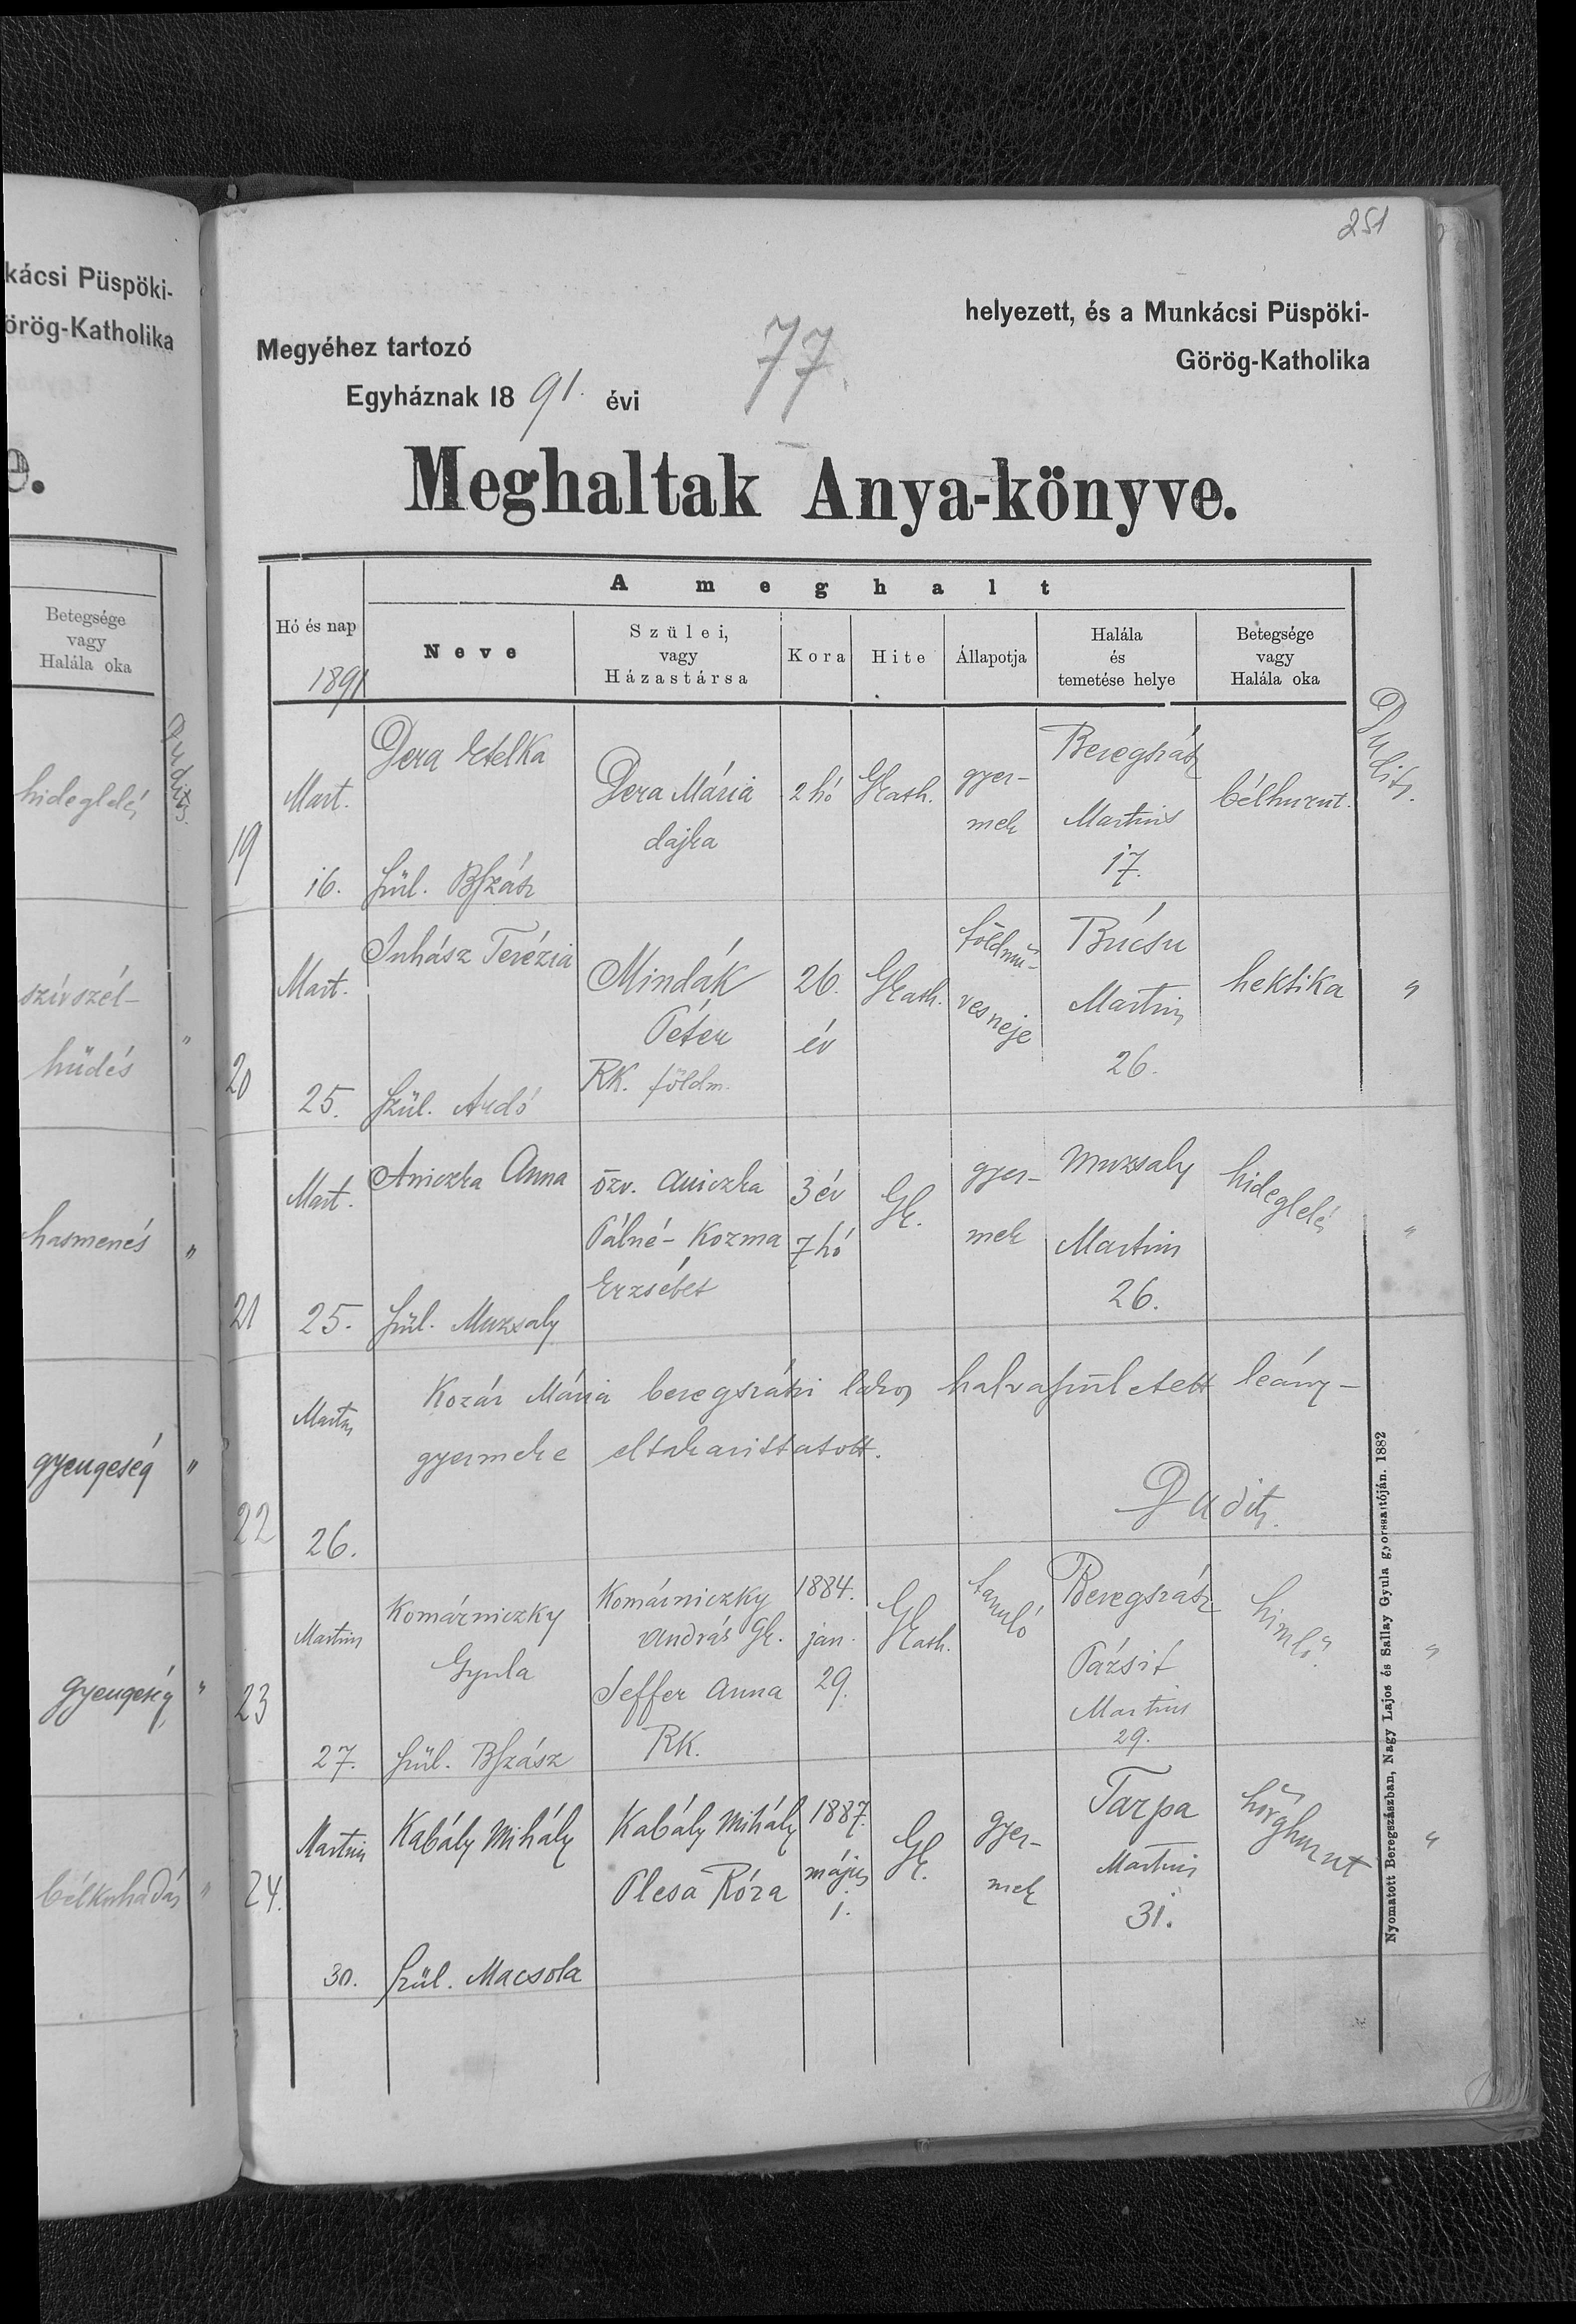 kácsi Püspöki-
örög-Katholika
e.
Betegsége
vagy
Halála oka
Dudits.
hideglelés
szívszél-
hűdés "
hasmenés "
gyengeség "
gyengeség "
"
251
helyezett, és a Munkácsi Püspöki-
Megyéhez tartozó
Görög-Katholika
Egyháznak 1891. évi
77.
Meghaltak Anya-könyve.
A meghalt
Hó és nap
1891
Neve
Szülei,
vagy
Házastársa
Kora
Hite
Állapotja
Halála
és
temetése helye
Betegsége
vagy
Halála oka
19
Mart.
16.
Dera Etelka
szül. BSzász
Dera Mária
dajka
2 hó
GKath.
gyer-
mek
Beregszász
Martius
17.
bélhurut.
Dudits.
20
Mart.
25.
Juhász Terézia
szül. Ardó
Mindák
Péter
RK. földm.
26.
év
GKath.
földmű-
ves neje
Búcsu
Martius
26.
hektika
"
21
Mart.
25.
Aniczka Anna
szül. Muzsaly
özv. Aniczka
Pálné - Kozma
Erzsébet
3 év
7 hó
GK.
gyer-
mek
Muzsaly
Martius
26.
hideglelés
"
22
Martius
26.
Kozár Mária beregszászi lakos halvaszületett leány-
gyermeke eltakaríttatott.
Dudits.
23
Martius
27.
Komárniczky
Gyula
szül. BSzász
Komárniczky
András GK.
Seffer Anna
RK.
1884.
jan.
29.
GKath.
tanuló
Beregszász
Pázsit
Martius
29.
himlő
"
24.
Martius
30.
Kabály Mihály
szül. Macsola
Kabály Mihály
Plesa Róza
1887.
május
1.
GK.
gyer-
mek
Tarpa
Martius
31.
hörghurut
"
Nyomatott Beregszászban, Nagy Lajos és Sallay Gyula gyorssajtóján. 1882